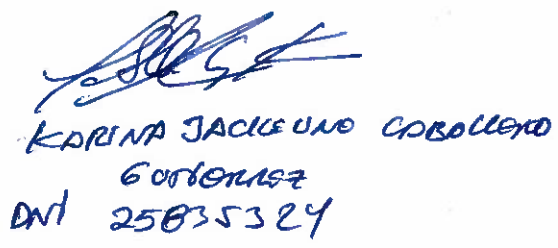 KARINA JACKELINE CABALLERO
GUTIERREZ
DNI 25835324